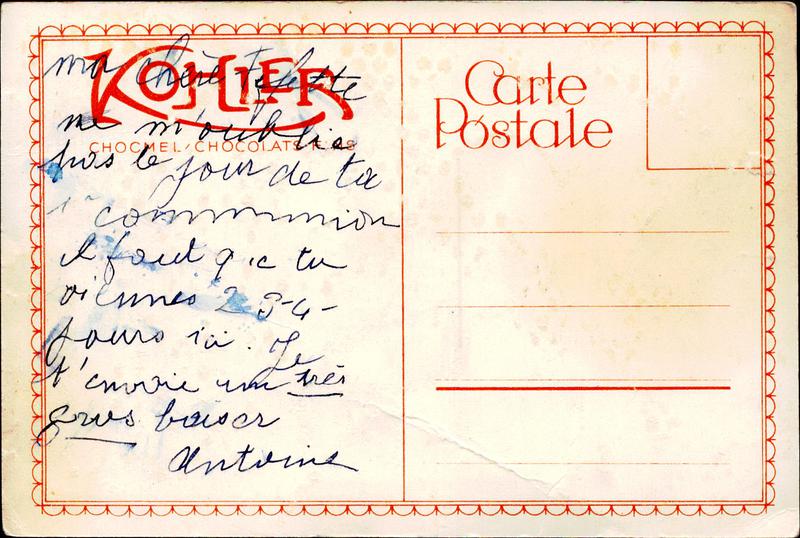 KOHLER
CHOCMEL, CHOCOLATS FINS
ma chère
ne m'oublie
pas le jour de ta
1re communion
il faut que tu
viennes 2-3-4-
jours ici. Je
t'envoie un très
gros baiser
Antoine
Carte
Postale